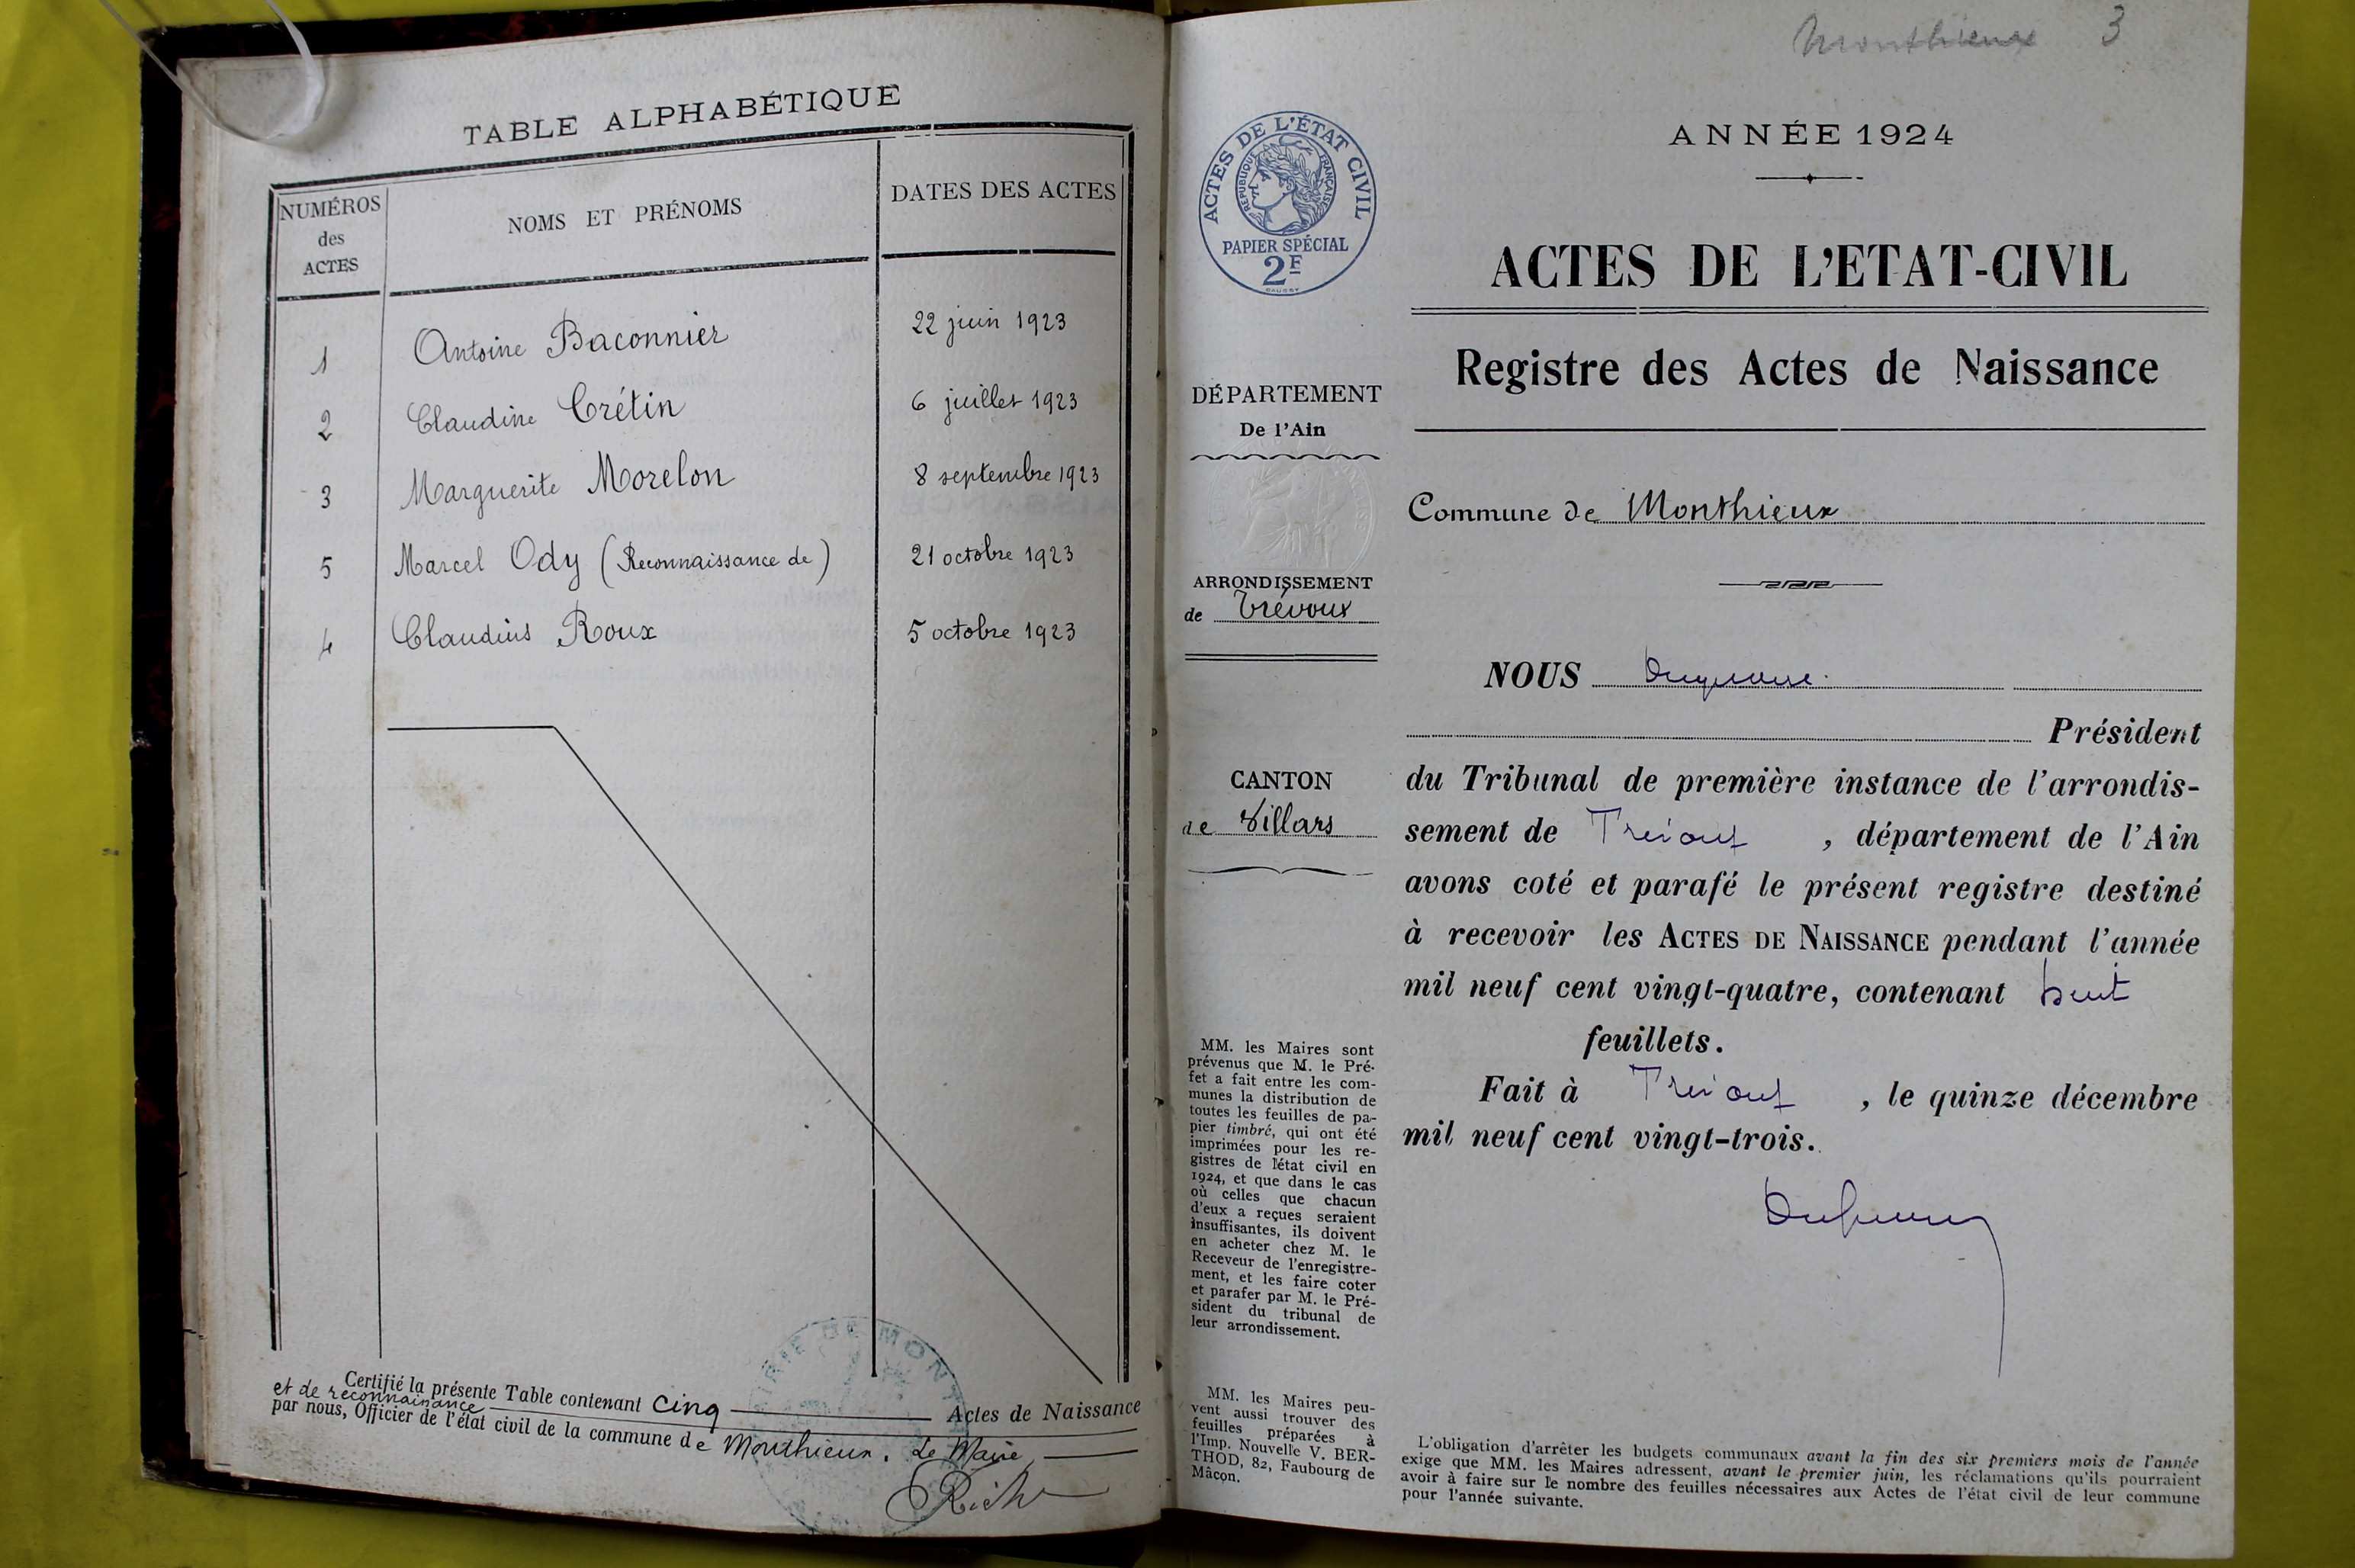 TABLE ALPHABÉTIQUE
NUMÉROS des ACTES
NOMS ET PRÉNOMS
DATES DES ACTES
1 Antoine Baconnier 22 juin 1923
2 Claudine Crétin 6 juillet 1923
3 Marguerite Morelon 8 septembre 1923
5 Marcel Ody (Reconnaissance de) 21 octobre 1923
4 Claudius Roux 5 octobre 1923
Certifié la présente Table contenant Cinq Actes de Naissance
et de reconnaissance
par nous, Officier de l'état civil de la commune de Monthieux. Le Maire
MAIRIE DE MONT
Monthieux 3
ACTES DE L'ÉTAT CIVIL
RÉPUBLIQUE FRANÇAISE
PAPIER SPÉCIAL
2F
DÉPARTEMENT
De l'Ain
ARRONDISSEMENT
de Trévoux
CANTON
de Villars
MM. les Maires sont
prévenus que M. le Pré-
fet a fait entre les com-
munes la distribution de
toutes les feuilles de pa-
pier timbré, qui ont été
imprimées pour les re-
gistres de l'état civil en
1924, et que dans le cas
où celles que chacun
d'eux a reçues seraient
insuffisantes, ils doivent
en acheter chez M. le
Receveur de l'enregistre-
ment, et les faire coter
et parafer par M. le Pré-
sident du tribunal de
leur arrondissement.
MM. les Maires peu-
vent aussi trouver des
feuilles préparées à
l'Imp. Nouvelle V. BER-
THOD, 82, Faubourg de
Mâcon.
ANNÉE 1924
ACTES DE L'ETAT-CIVIL
Registre des Actes de Naissance
Commune de Monthieux
NOUS
Président
du Tribunal de première instance de l'arrondis-
sement de Trévoux, département de l'Ain
avons coté et parafé le présent registre destiné
à recevoir les ACTES DE NAISSANCE pendant l'année
mil neuf cent vingt-quatre, contenant huit
feuillets.
Fait à Trévoux, le quinze décembre
mil neuf cent vingt-trois.
L'obligation d'arrêter les budgets communaux avant la fin des six premiers mois de l'année
exige que MM. les Maires adressent, avant le premier juin, les réclamations qu'ils pourraient
avoir à faire sur le nombre des feuilles nécessaires aux Actes de l'état civil de leur commune
pour l'année suivante.